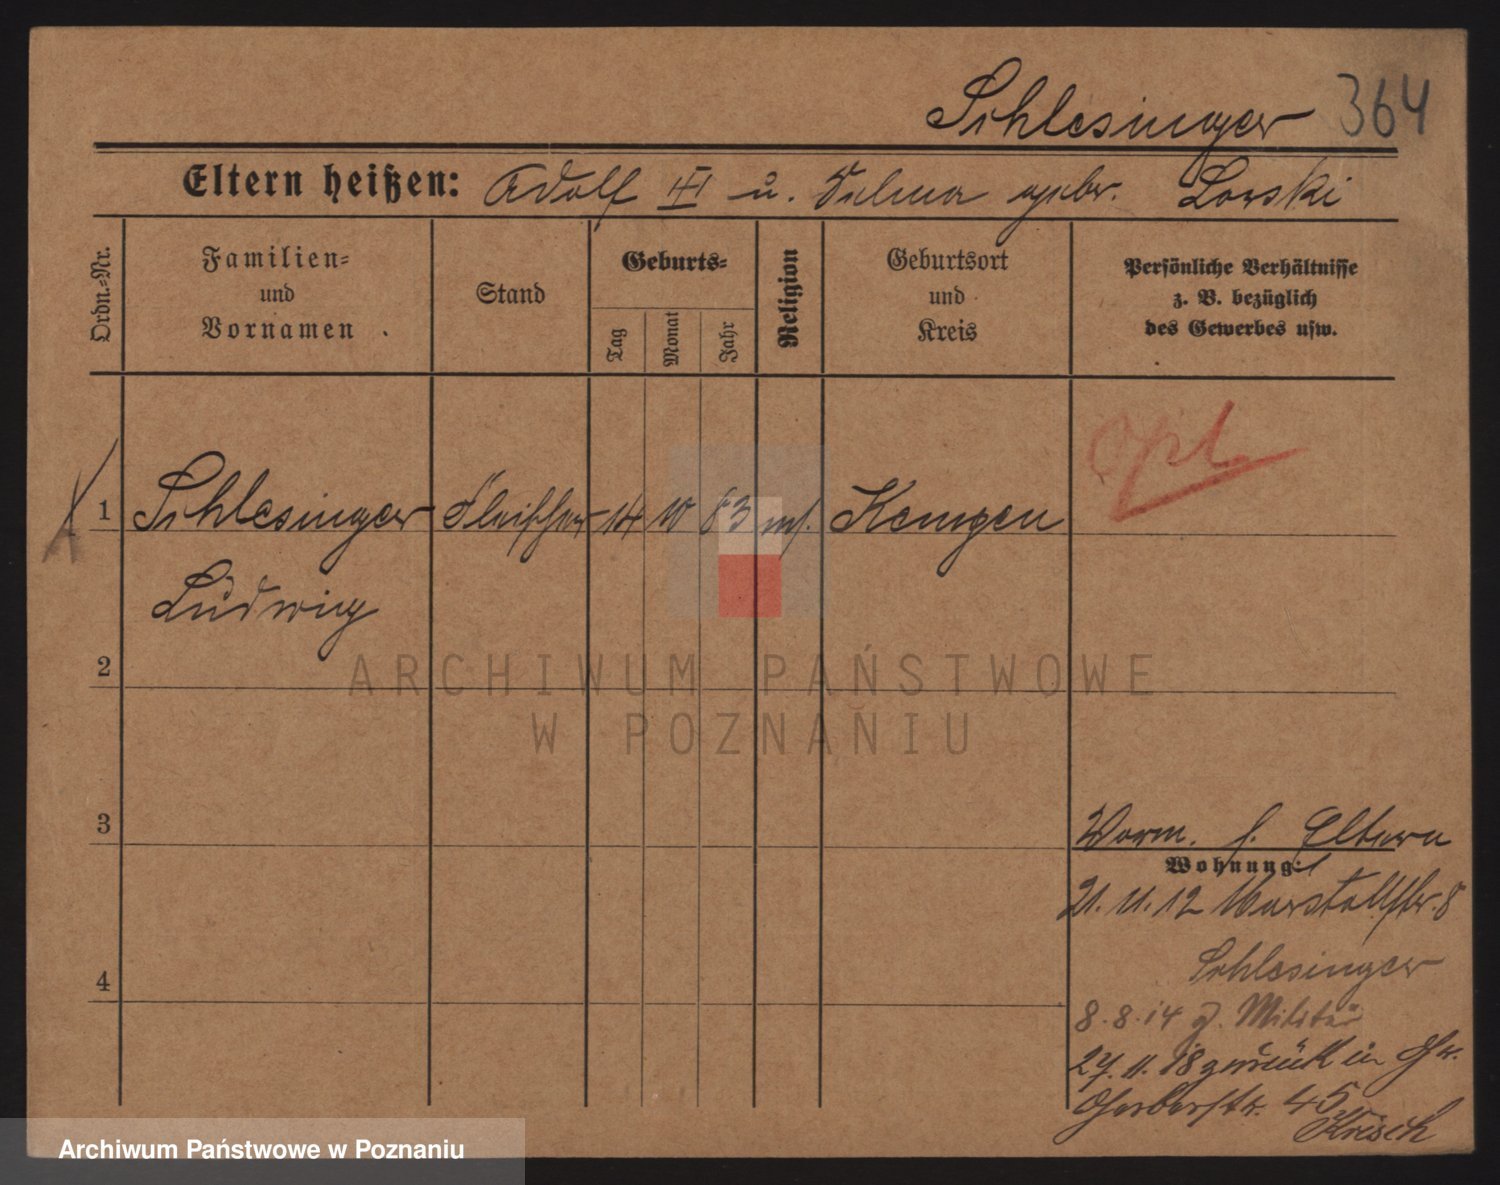 Schlesinger 364
Eltern heißen: Adolf III u. Selma gebr. Lorski
Ordn.-Nr.
Familien- und Vornamen
Stand
Geburts-
Tag
Monat
Jahr
Religion
Geburtsort und Kreis
Persönliche Verhältnisse z. B. bezüglich des Gewerbes usw.
Opl
1 Schlesinger Fleischer 14 10 83 ms. Kempen
Ludwig
2
ARCHIWUM PAŃSTWOWE
W POZNANIU
3
Vorm. s. Eltern
Wohnung:
21. 11. 12 Marstallstr. 8
Schlesinger
4
8. 8. 14 z. Militär
27. 11. 18 zurück in
Gerberstr. 45
Krisch
Archiwum Państwowe w Poznaniu